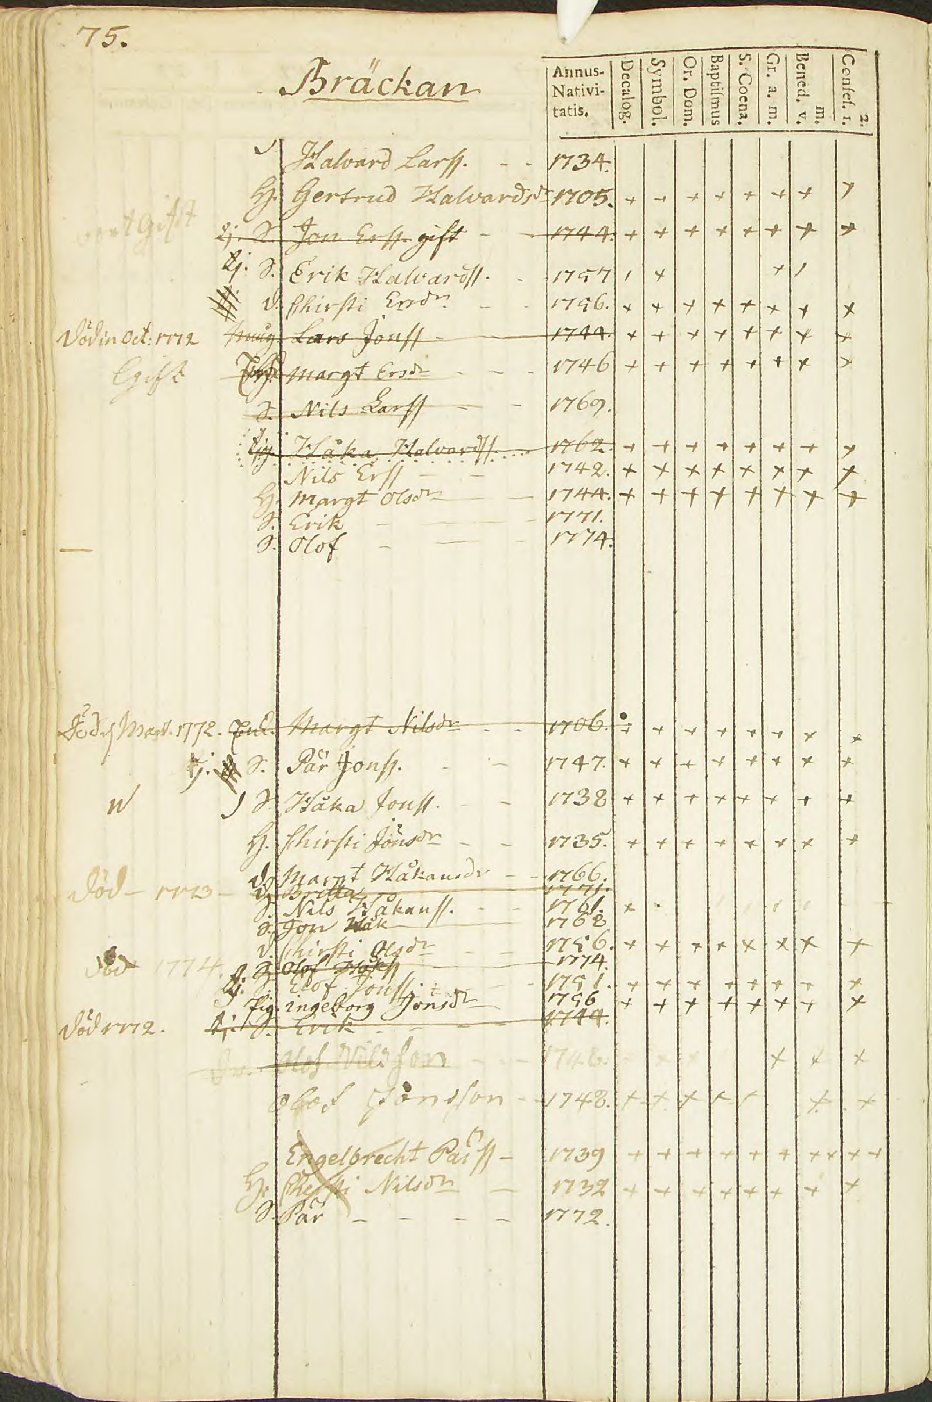 75.
Bräckan
Annus Nativitatis. Decalog. Symbol. Or. Dom. Baptismus S. Coena. Gr. a. m. Bened. v. m. Confes. 1. 2.
Halvard Larss. 1734.
H. Gertrud Halvardsdr 1705.
tj. S. Jon Erss gift 1744.
tj. S. Erik Halvardss. 1757
D. Chirsti Ersdr 1756.
död in Oct: 1772 Lars Jonss 1744.
Gift Margt Ersdr 1746
S. Nils Larss 1769.
Håka Halvardss 1762.
Nils Erss 1742.
H. Margt Olsdr 1744.
S. Erik 1771.
S. Olof 1774.
Död Mart. 1772. Margt Nilsdr 1706.
tj. S. Pär Jonss. 1747.
S. Håka Jonss. 1738
H. Chirsti Jönsdr 1735.
D. Margt Håkansdr 1766.
död 1773 Britta 1771.
S. Nils Håkanss. 1761.
S. Jon Håk 1768
D. Chirsti Olsdr 1756.
död 1774. Olof Håkss 1774.
tj. S. Elof Jonss. 1751.
Pig. ingeborg Jonsdr 1756
död 1772. tj. S. Erik 1744.
Olof Nilsson 1746.
Olof Jönsson 1748.
Engelbrecht Parss 1739
H. Chersti Nilsdr 1732
S. Pär 1772.